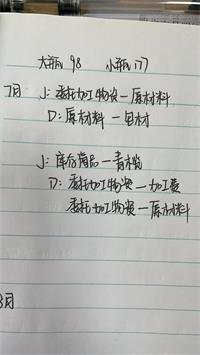 大瓶 98 小瓶 177
7月 J: 委托加工物资一原材料
D: 原材料一包材
J: 库存商品一青梅
D: 委托加工物资一加工费
委托加工物资一原材料
8月